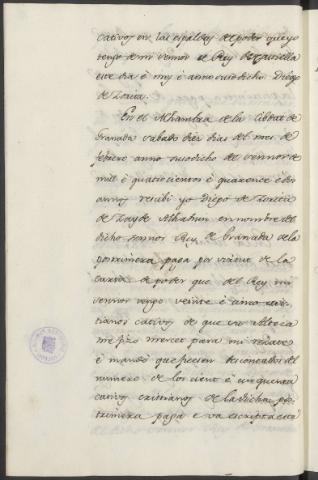 cativos en las espaldas del poder que yo
tengo de mi sennor el Rey de Castilla
este dia é mes é anno susodicho Diego
de Zorita.
En el Alhambra de la Cibdat de
Granada sabado diez dias del mes de
febrero anno susodicho del sennor de
mill é quatrocientos é quarenta é dos
annos recibi yo Diego de Zorita
de Zayde Alhabun en nombre del
dicho sennor Rey de Granada de la
postrimera paga por virtud de la
carta de poder que del Rey mi
sennor tengo veinte é cinco cris-
tianos cativos de que su Alteza
me fizo merced para mi rescate
é mandó que fuesen descontados del
numero de los cient é cinquenta
cativos cristianos de la dicha pos-
trimera paga é va escripta esta